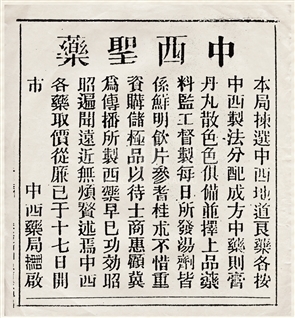 中西聖藥
本局揀選中西地道良藥各按
中西製法分配成方中藥則膏
丹丸散色色俱備並擇上品藥
料監工督製每日所發湯劑皆
係鮮明飲片參耆桂朮不惜重
資購儲極品以待士商惠顧冀
爲傳播所製西藥早已功効昭
昭遍聞遠近無煩贅述焉中西
各藥取價從廉已于十七日開
市　中西藥局謹啟